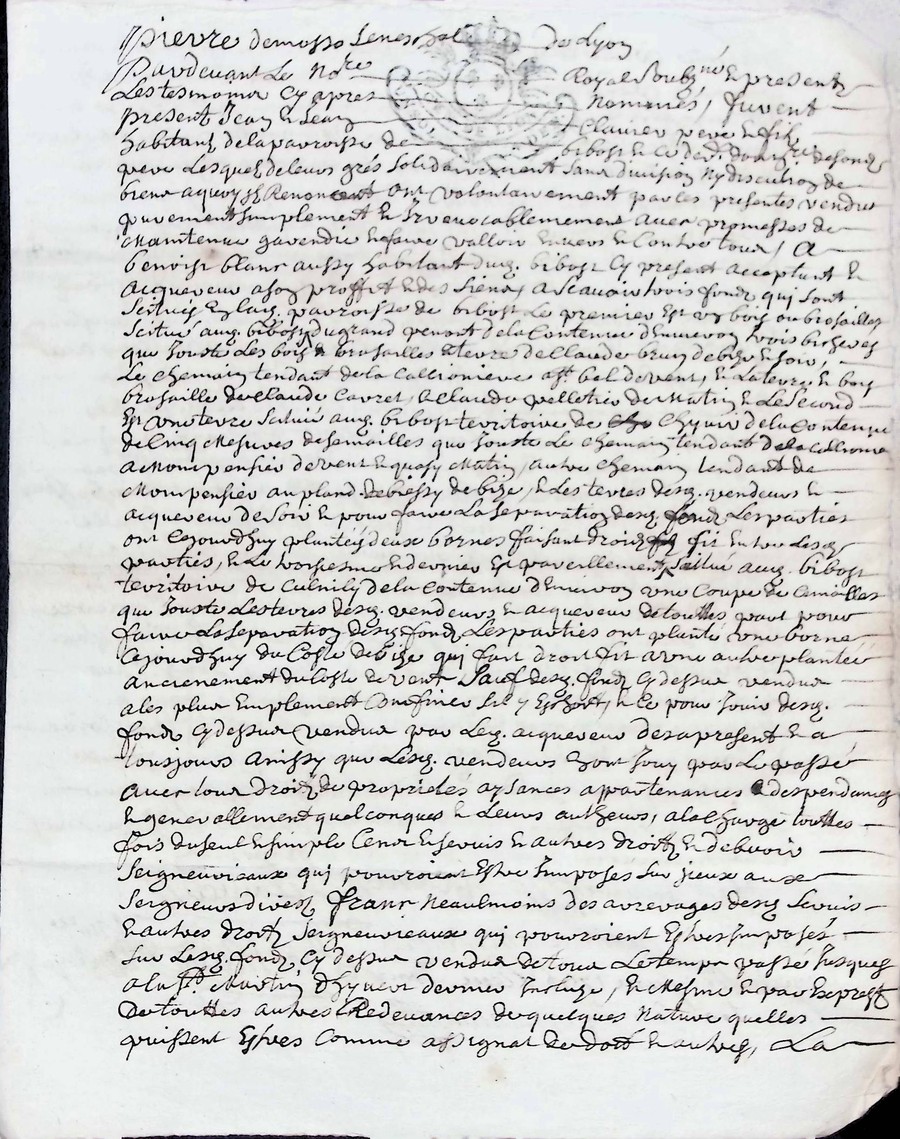 pierre demasso seneschal de Lyon
Pardevant Le No.re Royal Soubz.né & present
Les tesmoins Cy apres Nommés, furent
present Jean & Jean Clavier pere & fils
habitans de la parroisse de bibost
pere Lesquels de leurs grés Solidairement sans division Ny discution de
biens aquoy ils Renoncent ont volontairement par les presentes vendus
purement simplement & Irrevocablement avec promesses de
Maintenir garendir & faire valloir Envers & Contre tous, A
benoist blanc aussy habitant dud. bibost Cy present acceptant &
Acquereur a son proffit & des siens, A Scavoir trois fonds qui sont
Scitués En lad. parroisse de bibost Le premier Est un bois ou brosailles
Scitué aud. bibost du grand penont de la Contenue d'Environ trois bicherees
que Jouste Les bois & brosailles & terre de Claude brun de bize & soir,
Le Chemain tendant de la Callioniere de vent, & La terre & bois
brosaille de Claude Cavret, & Claude pelletier de Matin & Le Second
Est une terre Scitué aud. bibost territoire de Chyvir de la Contenue
de Cinq Mesures de semailles que Jouste Le Chemain tendant de la Callioniere
a Monpensier de vent & quasy Matin, autre Chemain tendant de
Monpensier au pland de biessy de bize, & Les terres desd. vendeurs &
acquereur de Soir & pour faire La Separation desd. fonds Les parties
ont Cejourdhuy plantés deux bornes faisant droit fit Entre Lesd.
parties, & Le troisiesme & dernier Est pareillement Scitué aud. bibost
territoire de Culnily de la Contenue d'Environ une Coupe de Semailles
que Jouste Les terres desd. vendeurs & acquereur de touttes part pour
faire La Separation desd. fonds Les parties ont planté une borne
Cejourdhuy du Costé de bize qui fait droit fit a une autre plantée
anciennement du Costé de vent Sauf desd. fonds Cy dessus vendus
a les plus Emplement Confiner sil y Eschoit, & Ce pour Jouir desd.
fonds Cy dessus vendus par Led. acquereur des a present & a
tousjours Ainssy que Lesd. vendeurs En ont Jouy par Le passé
Avec tous droits de proprietés aysances appartenances & despendances
& generallement quelconques & Leurs autheurs, a la Charge touttes
fois du seul & simple Cens & servis & autres droits & debvoirs
Seigneuriaux qui pourroient Estre Imposés Sur Jceux aux
Seigneurs direz franc Neaulmoins des arrerages desd. Servis
& autres droits Seigneuriaux qui pourroient Estres Imposés
Sur Lesd. fonds Cy dessus vendus de tous Le temps passé Jusques
a la St. Martin d'hyver dernier Incluze, & Mesme & par Exprest
de touttes autres Redevances de quelques Nature quelles
puissent Estres Comme assignat de dott & autres, La